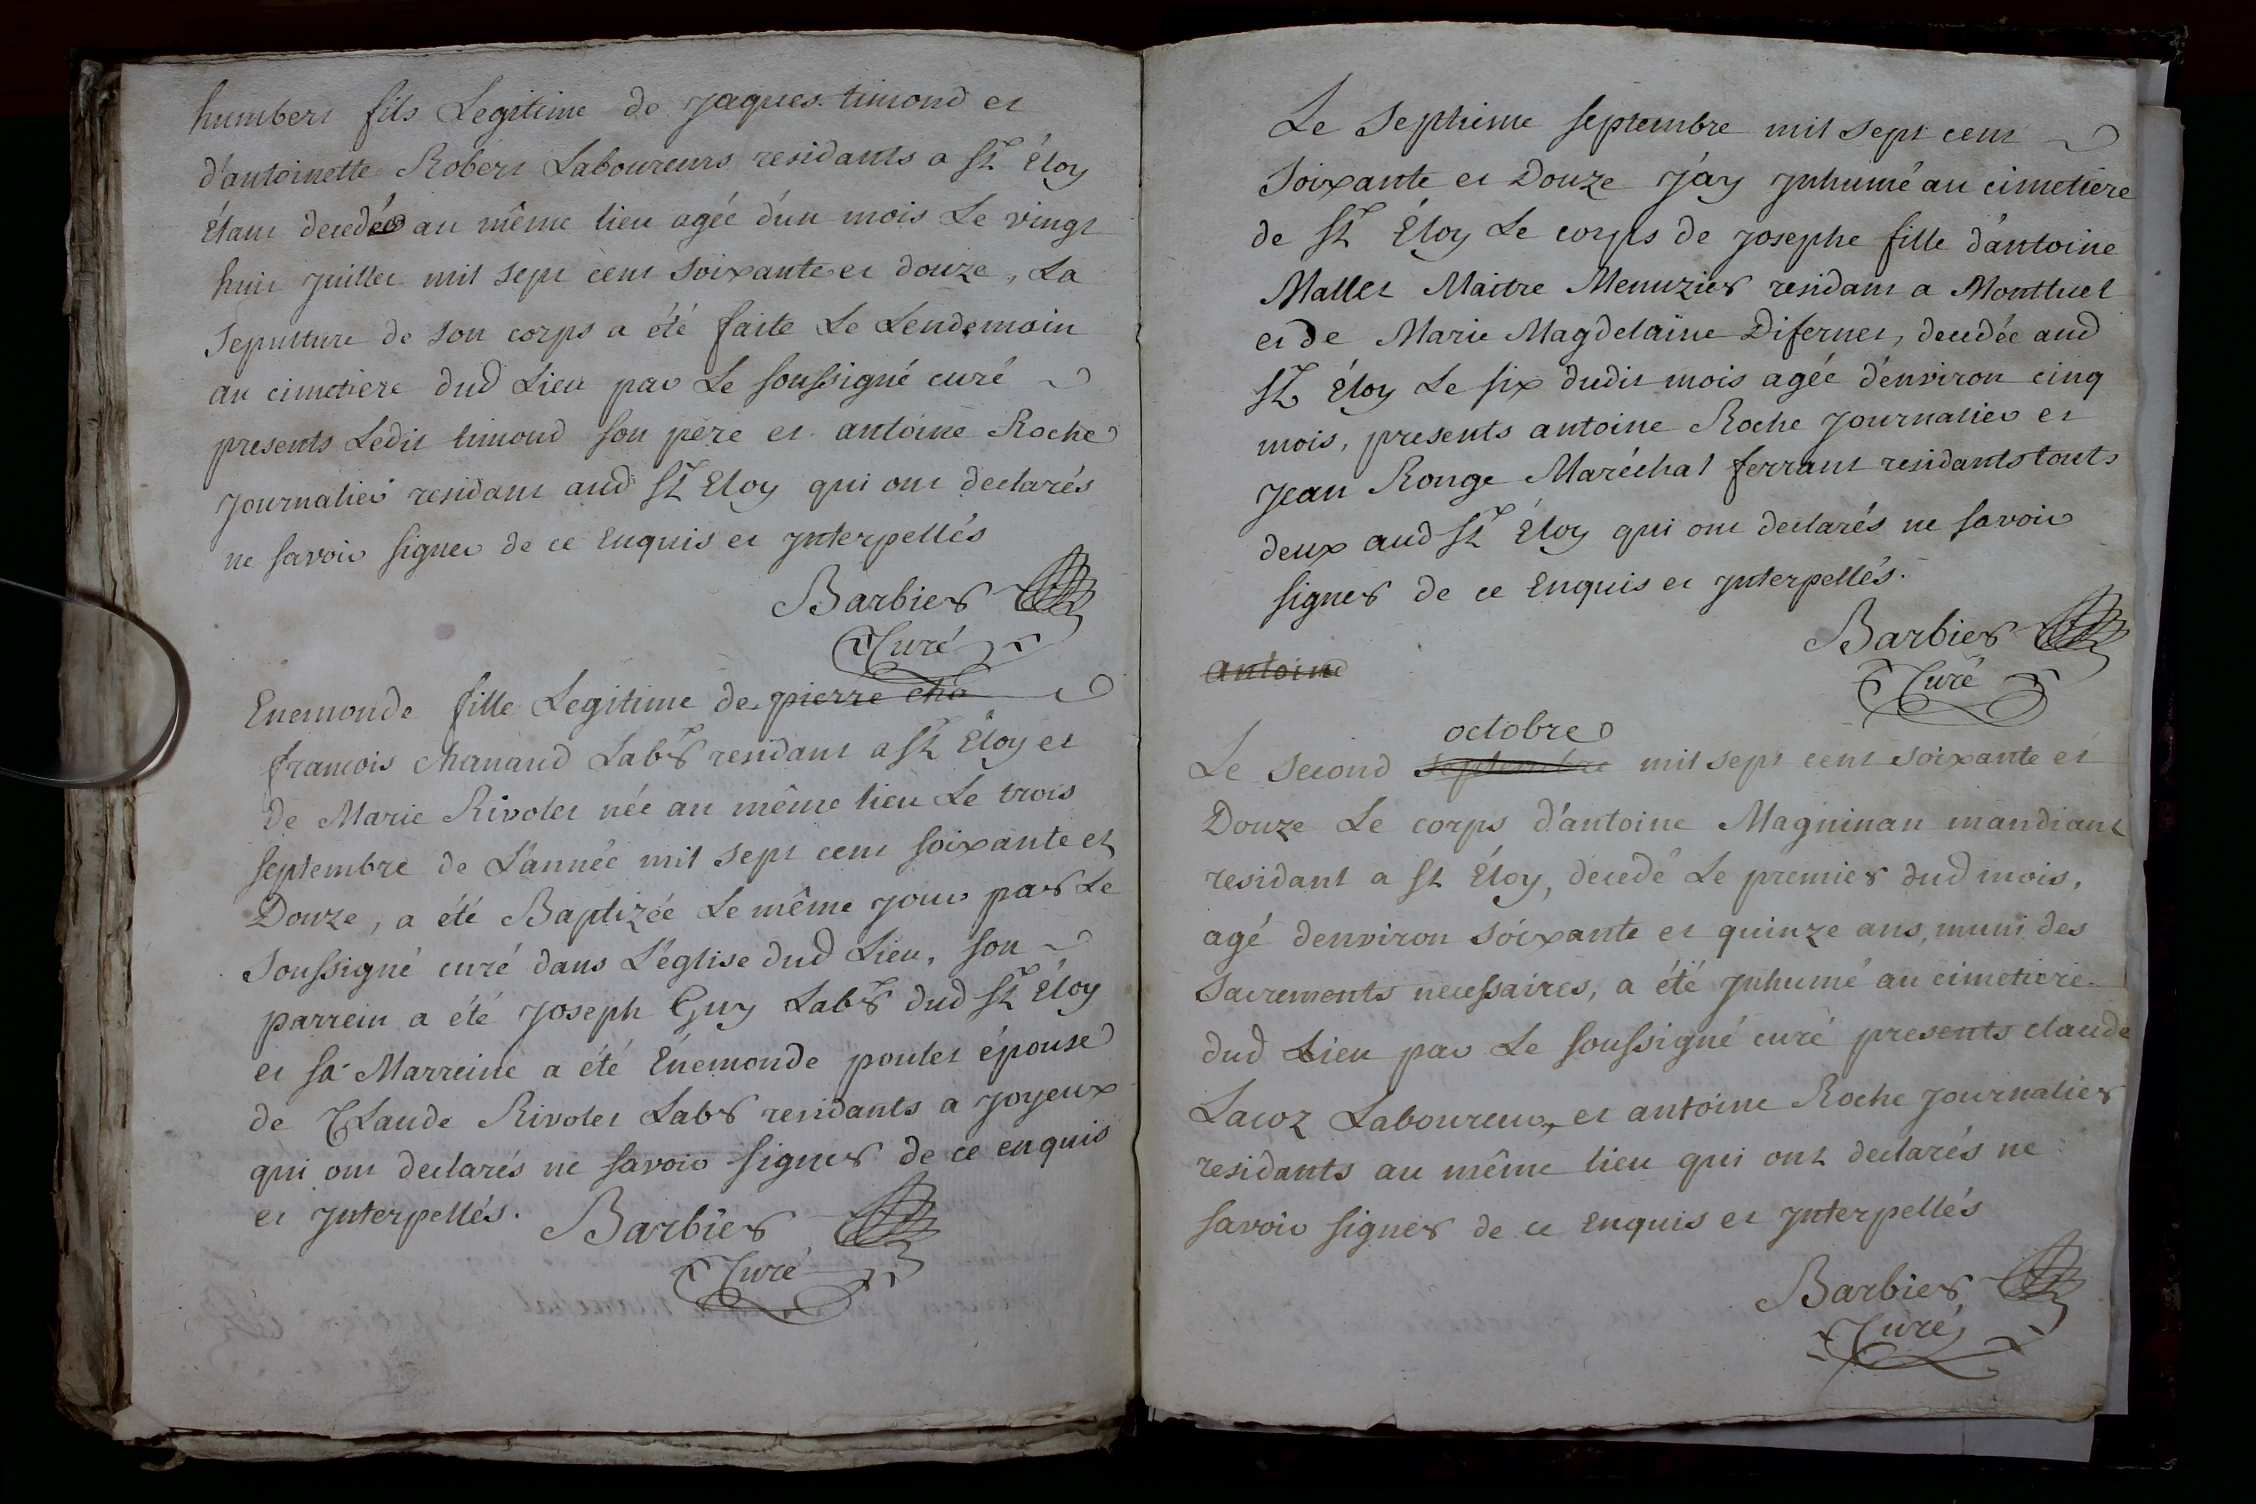 humbert fils Legitime de jaques timond et
d'antoinette Robert Laboureurs residants a St Éloy
étant decedée au même lieu agée d'un mois Le vingt
huit juillet mil sept cent soixante et douze, La
sepulture de son corps a été faite Le Lendemain
au cimetiere dud Lieu par Le soussigné curé
presents Ledit timond son père et antoine Roche
journalier residant aud St Eloy qui ont declarés
ne savoir signer de ce Enquis et ynterpellés
Barbier
Curé
Enemonde fille Legitime de pierre cha
francois chanand Labr residant a St Éloy et
de Marie Rivolet née au même lieu Le trois
septembre de L'année mil sept cent soixante et
Douze, a été Baptizée Le même jour par Le
soussigné curé dans L'église dud Lieu, son
parrein a été joseph Guy Labr dud St Éloy
et sa Marreine a été Énemonde poulet épouse
de CLaude Rivolet Labr residants a joyeux
qui ont declarés ne savoir signer de ce enquis
et ynterpellés. Barbier
Curé
Le septieme septembre mil sept cent
soixante et Douze j'ay ynhumé au cimetiere
de St Éloy Le corps de josephe fille d'antoine
Mallet Maitre Menuzier residant a Montluel
et de Marie Magdelaine Difernet, decedée aud
St Éloy Le six dudit mois agée d'environ cinq
mois, presents antoine Roche journalier et
jean Ronge Maréchal ferrant residants touts
deux aud St Éloy qui ont declarés ne savoir
signer de ce Enquis et ynterpellés.
Barbier
Curé
antoine
octobre
Le second septembre mil sept cent soixante et
Douze Le corps d'antoine Magninan mandiant
residant a St Éloy, decedé Le premier dud mois,
agé d'environ soixante et quinze ans, muni des
sacrements necessaires, a été ynhumé au cimetiere
dud Lieu par Le soussigné curé presents claude
Lacoz Laboureur, et antoine Roche journalier
residants au même lieu qui ont declarés ne
savoir signer de ce Enquis et ynterpellés
Barbier
Curé